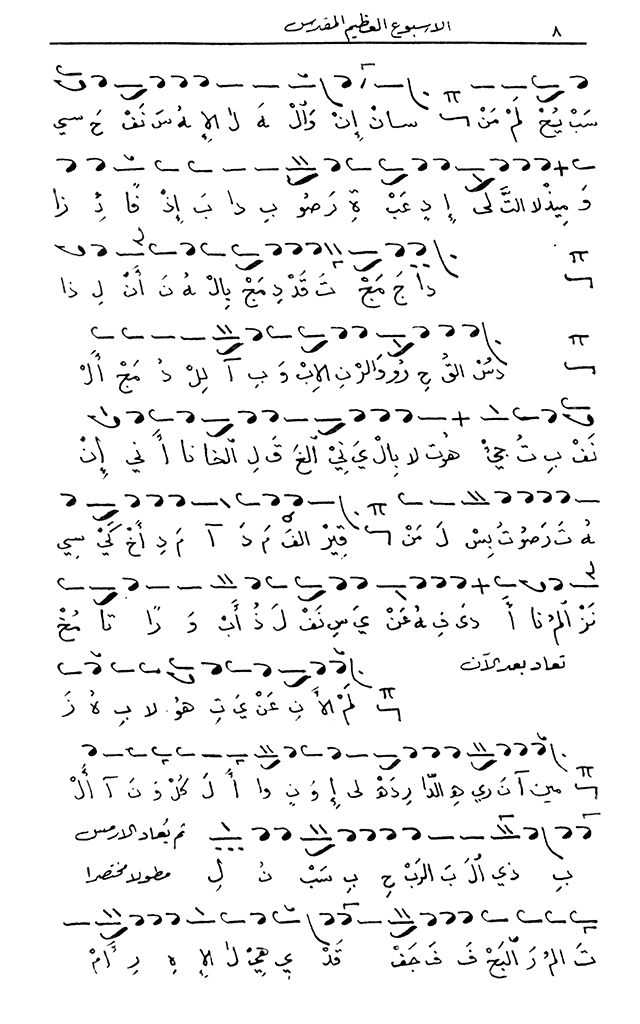 ٨ الاسبوع العظيم المقدس
سَبْ يُحْ لَمْ مَنْ سانْ إِنْ وَالْ هَ لْ الإِ هُ سَ نَفْ حَ سي
وَ مِيذْ لا التَّ لَى إِ دِ عَبْ ةِ رَ صُو بِ دا بَ إِذْ فًا ئِ زا
دًا جَ مَجْ تَ قَدْ دِ مَجْ بِالْ هُ نَ أَنْ لِ ذا
دُسْ القُ حِ رُو وَالرْ نِ الإِبْ وَ بِ آ لِلْ دُ مَجْ أَلْ
نَفْ بِ تُ جِيْ هُوت لا بِالْ يَ نِيْ الغَ قَ لِ الخا نا أَ ني إِنْ
هُ تَ رَ صُو تُ بِسْ لَ مَنْ قِيرْ الفْ مَ دَ آ مَ دِ أَخْ كَيْ سِي
نَزْ المْ نا أَ دي فِ هُ عَنْ يَ سِ نَفْ لَ ذُ أَبْ وَ رًا تا مُخْ
تعاد بعد الآن
لَمْ الأَ نِ عَنْ يَ تِ هُو لا بِ هُ زَ
مين آ نَ ري هِ الدّا رِ دَهْ لى إِ وَ نٍ وا أَ لَ كُلْ وَ نَ آ أَلْ
ثم يُعاد الارمس
بِ ذي اَلْ بَ الرَبْ حِ بِ سَبْ نُ لِ مطولا مختصرا
تَ المُ رَ البَحْ فَ فَ جَفْ قَدْ يِ هِيْ لْ الإِ هِ رِ أَمْ